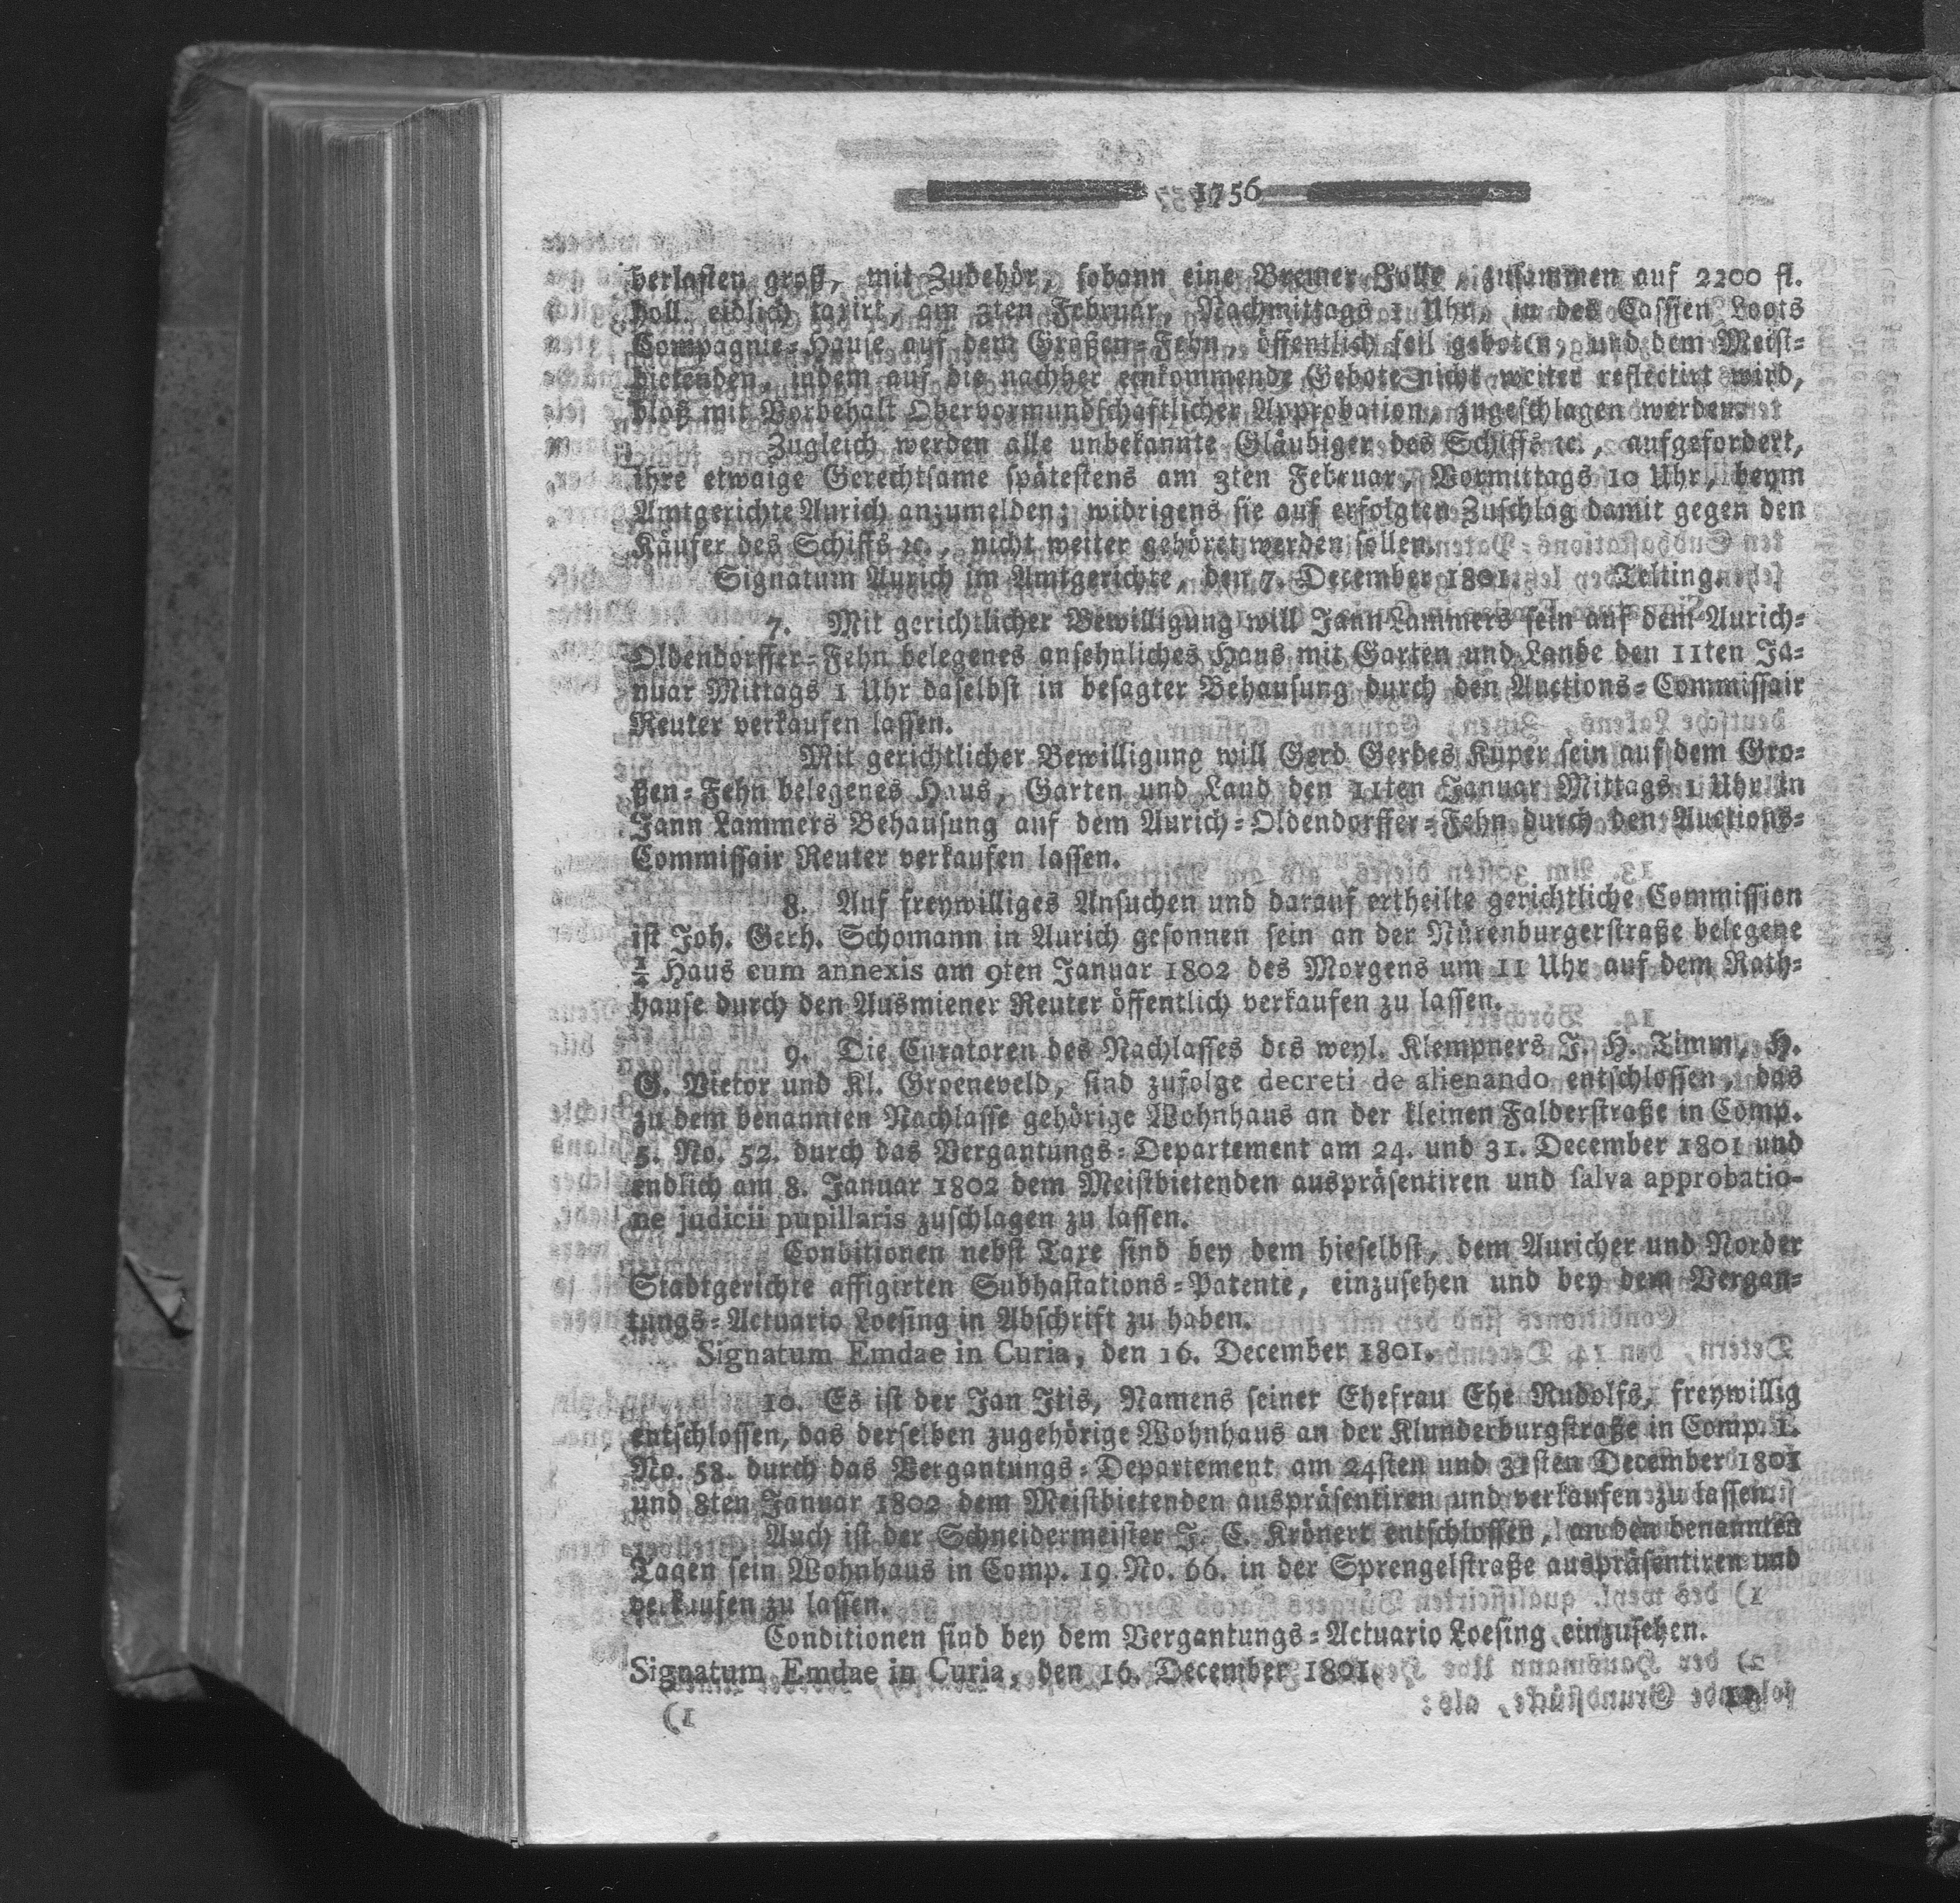 1756
berlasten groß, mit Zubehör, sodann eine Bremer Jolle, zusammen auf 2200 fl.
holl. eidlich taxirt, am 3ten Februar, Nachmittags 1 Uhr, in des Cassien Loots
Compagnie-Hause auf dem Großen-Fehn, öffentlich feil geboten, und dem Meist-
bietenden, indem auf die nachher einkommende Gebote nicht weiter reflectirt wird,
bloß mit Vorbehalt Obervormundschaftlicher Approbation, zugeschlagen werden.
Zugleich werden alle unbekannte Gläubiger des Schiffs ꝛc., aufgefordert,
ihre etwaige Gerechtsame spätestens am 3ten Februar, Vormittags 10 Uhr, beym
Amtgerichte Aurich anzumelden; widrigens sie auf erfolgten Zuschlag damit gegen den
Käufer des Schiffs ꝛc., nicht weiter gehöret werden sollen.
Signatum Aurich im Amtgerichte, den 7. December 1801. Telting.
7. Mit gerichtlicher Bewilligung will Jann Lammers sein auf dem Aurich-
Oldendorffer-Fehn belegenes ansehnliches Haus mit Garten und Lande den 11ten Ja-
nuar Mittags 1 Uhr daselbst in besagter Behausung durch den Auctions-Commissair
Reuter verkaufen lassen.
Mit gerichtlicher Bewilligung will Gerd Gerdes Kuper sein auf dem Gro-
ßen-Fehn belegenes Haus, Garten und Land den 11ten Januar Mittags 1 Uhr in
Jann Lammers Behausung auf dem Aurich-Oldendorffer-Fehn durch den Auctions-
Commissair Reuter verkaufen lassen.
8. Auf freywilliges Ansuchen und darauf ertheilte gerichtliche Commission
ist Joh. Gerh. Schomann in Aurich gesonnen sein an der Nürenburgerstraße belegene
Haus cum annexis am 9ten Januar 1802 des Morgens um 11 Uhr auf dem Rath-
hause durch den Ausmiener Reuter öffentlich verkaufen zu lassen.
9. Die Curatoren des Nachlasses des weyl. Klempners J. H. Timm, H.
G. Vietor und Kl. Groeneveld, sind zufolge decreti de alienando entschlossen, das
zu dem benannten Nachlasse gehörige Wohnhaus an der kleinen Falderstraße in Comp.
5. No. 52. durch das Vergantungs-Departement am 24. und 31. December 1801 und
endlich am 8. Januar 1802 dem Meistbietenden auspräsentiren und salva approbatio-
ne judicii pupillaris zuschlagen zu lassen.
Conditionen nebst Taxe sind bey dem hieselbst, dem Auricher und Norder
Stadtgerichte affigirten Subhastations-Patente, einzusehen und bey dem Vergan-
tungs-Actuario Loesing in Abschrift zu haben.
Signatum Emdae in Curia, den 16. December 1801.
10. Es ist der Jan Itis, Namens seiner Ehefrau Ehe Rudolfs, freywillig
entschlossen, das derselben zugehörige Wohnhaus an der Klunderburgstraße in Comp. 1.
No. 58. durch das Vergantungs-Departement am 24sten und 31sten December 1801
und 8ten Januar 1802 dem Meistbietenden auspräsentiren und verkaufen zu lassen.
Auch ist der Schneidermeister J. C. Krönert entschlossen, an den benannten
Tagen sein Wohnhaus in Comp. 19. No. 66. in der Sprengelstraße auspräsentiren und
verkaufen zu lassen.
Conditionen sind bey dem Vergantungs-Actuario Loesing einzusehen.
Signatum Emdae in Curia, den 16. December 1801.